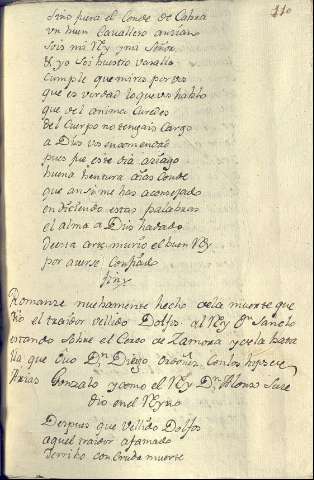 110
Sino fuera el Conde de Cabra
vn buen Cavallero anciano
Sois mi Rey y mi Señor
& yo soi vuestro vasallo
Cumple que mireis por vos
que es verdad lo que vos hablo
que del anima curedes
del Cuerpo no tengais Cargo
a Dios vos encomendad
pues fue este dia aziago
buena ventura ayas Conde
que ansi me has aconsejado
en diciendo estas palabras
el alma a Dios ha dado
desta arte murio el buen Rey
por averse Confiado
finy
Romanze nuebamente hecho de la muerte que
dio el traidor vellido Dolfos al Rey Dn Sancho
estando sobre el Cerco de Zamora y de la bata
lla que ovo Dn Diego Ordoñez Con los hijos de
Arias Gonzalo y como el Rey Dn Alonso Suce
dio en el Reyno
Despues que vellido Dolfos
aquel traidor afamado
derribo con Cruda muerte